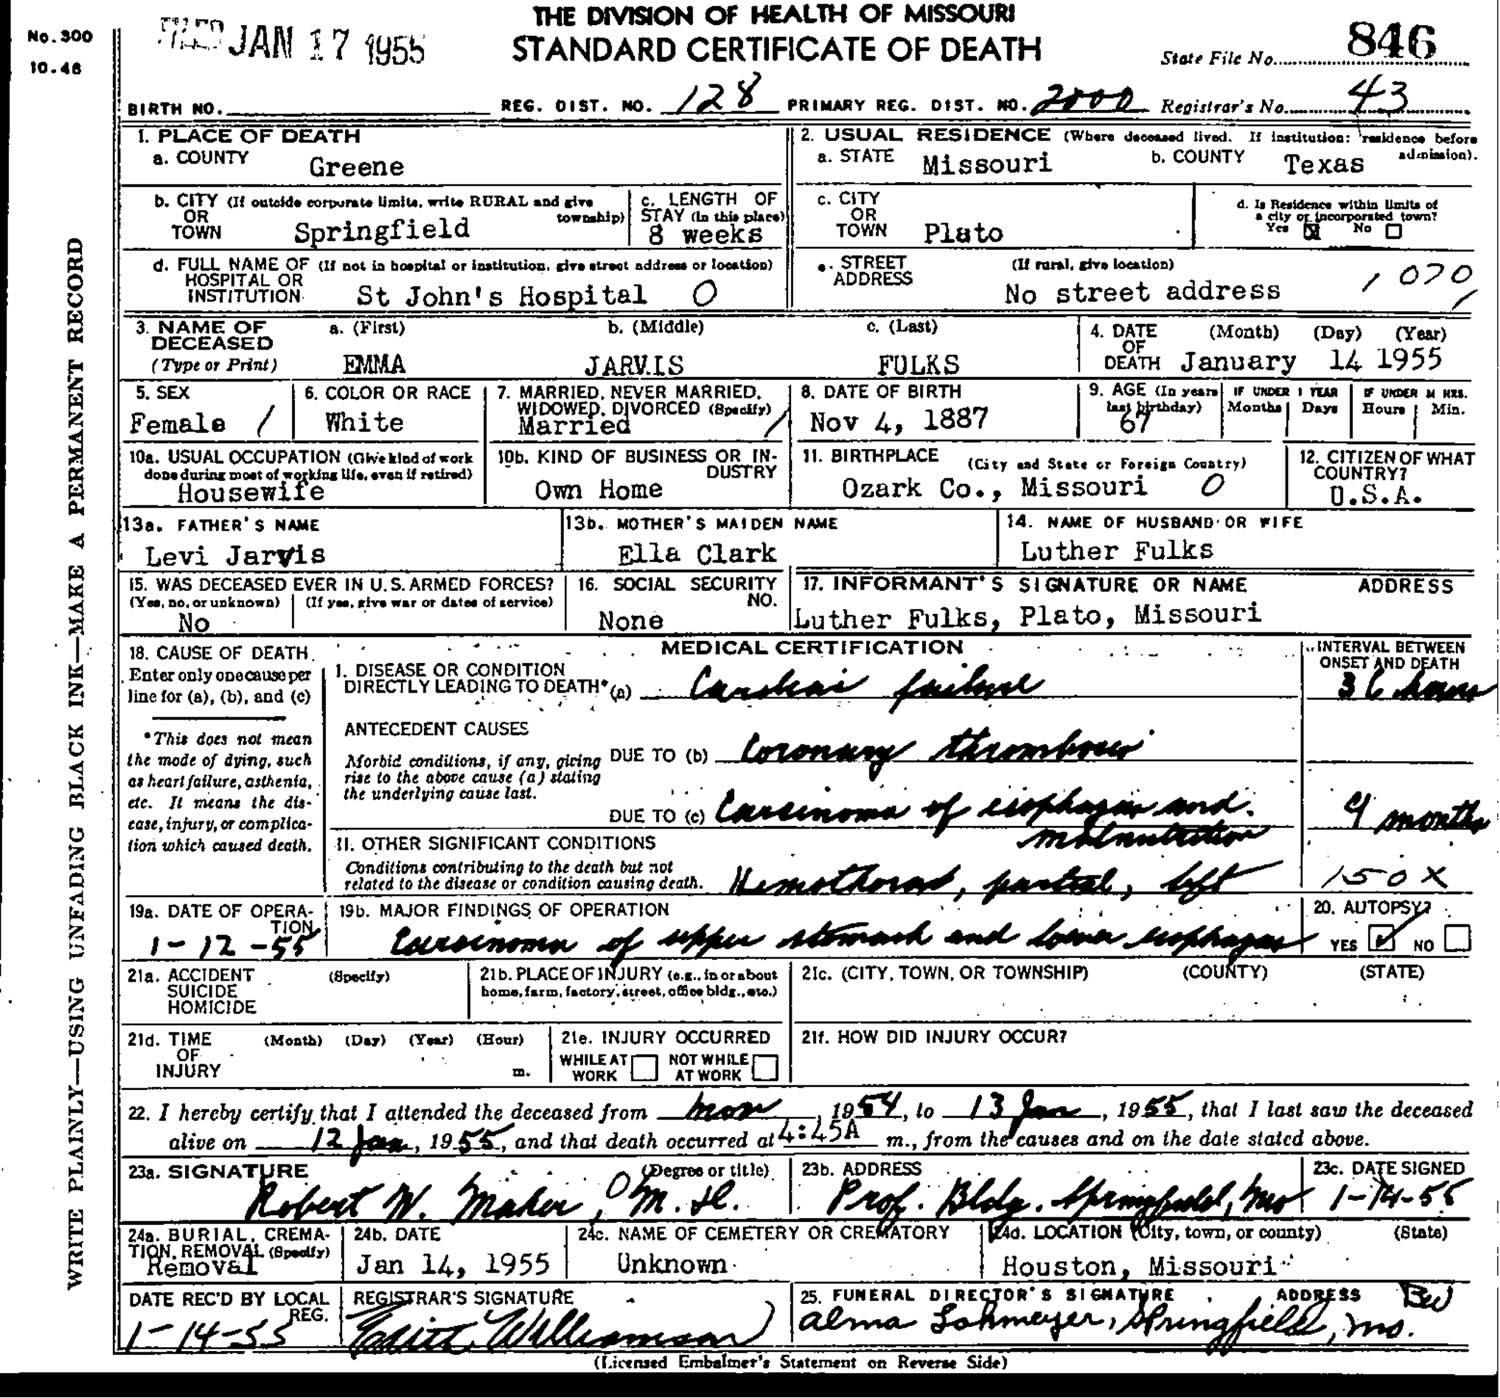 THE DIVISION OF HEALTH OF MISSOURI
STANDARD CERTIFICATE OF DEATH
No. 300
10-48
FILED JAN 17 1955
State File No. 846
BIRTH NO. REG. DIST. NO. 128 PRIMARY REG. DIST. NO. 2000 Registrar's No. 43
WRITE PLAINLY—USING UNFADING BLACK INK—MAKE A PERMANENT RECORD
1. PLACE OF DEATH
a. COUNTY Greene
2. USUAL RESIDENCE (Where deceased lived. If institution: residence before admission).
a. STATE Missouri b. COUNTY Texas
b. CITY (If outside corporate limits, write RURAL and give township)
OR
TOWN Springfield
c. LENGTH OF
STAY (in this place)
8 weeks
c. CITY
OR
TOWN Plato
d. Is Residence within limits of
a city or incorporated town?
Yes No
d. FULL NAME OF (If not in hospital or institution, give street address or location)
HOSPITAL OR
INSTITUTION St John's Hospital 0
e. STREET
ADDRESS
(If rural, give location)
No street address
1070
1
3. NAME OF
DECEASED
(Type or Print)
a. (First) b. (Middle) c. (Last)
EMMA JARVIS FULKS
4. DATE
OF
DEATH
(Month) (Day) (Year)
January 14 1955
5. SEX
Female /
6. COLOR OR RACE
White
7. MARRIED, NEVER MARRIED,
WIDOWED, DIVORCED (Specify)
Married /
8. DATE OF BIRTH
Nov 4, 1887
9. AGE (In years
last birthday)
67
IF UNDER 1 YEAR
Months Days
IF UNDER 24 HRS.
Hours Min.
10a. USUAL OCCUPATION (Give kind of work
done during most of working life, even if retired)
Housewife
10b. KIND OF BUSINESS OR IN-
DUSTRY
Own Home
11. BIRTHPLACE (City and State or Foreign Country)
Ozark Co., Missouri 0
12. CITIZEN OF WHAT
COUNTRY?
U.S.A.
13a. FATHER'S NAME
Levi Jarvis
13b. MOTHER'S MAIDEN NAME
Ella Clark
14. NAME OF HUSBAND OR WIFE
Luther Fulks
15. WAS DECEASED EVER IN U.S. ARMED FORCES?
(Yes, no, or unknown) (If yes, give war or dates of service)
No
16. SOCIAL SECURITY
NO.
None
17. INFORMANT'S SIGNATURE OR NAME ADDRESS
Luther Fulks, Plato, Missouri
18. CAUSE OF DEATH
Enter only one cause per
line for (a), (b), and (c)
*This does not mean
the mode of dying, such
as heart failure, asthenia,
etc. It means the dis-
ease, injury, or complica-
tion which caused death.
MEDICAL CERTIFICATION
INTERVAL BETWEEN
ONSET AND DEATH
I. DISEASE OR CONDITION
DIRECTLY LEADING TO DEATH* (a) Cardiac failure 36 hours
ANTECEDENT CAUSES
Morbid conditions, if any, giving
rise to the above cause (a) stating
the underlying cause last.
DUE TO (b) Coronary thrombosis
DUE TO (c) Carcinoma of esophagus and
malnutrition
9 months
II. OTHER SIGNIFICANT CONDITIONS
Conditions contributing to the death but not
related to the disease or condition causing death.
Hemothorax, partial, left
150X
19a. DATE OF OPERA-
TION
1-12-55
19b. MAJOR FINDINGS OF OPERATION
Carcinoma of upper stomach and lower esophagus
20. AUTOPSY?
YES NO
21a. ACCIDENT
SUICIDE
HOMICIDE
(Specify)
21b. PLACE OF INJURY (e.g., in or about
home, farm, factory, street, office bldg., etc.)
21c. (CITY, TOWN, OR TOWNSHIP) (COUNTY) (STATE)
21d. TIME
OF
INJURY
(Month) (Day) (Year) (Hour)
m.
21e. INJURY OCCURRED
WHILE AT
WORK
NOT WHILE
AT WORK
21f. HOW DID INJURY OCCUR?
22. I hereby certify that I attended the deceased from Nov, 1954, to 13 Jan, 1955, that I last saw the deceased
alive on 12 Jan, 1955, and that death occurred at 4:45A m., from the causes and on the date stated above.
23a. SIGNATURE (Degree or title)
Robert W. Maher, M.D.
23b. ADDRESS
Prof. Bldg. Springfield, Mo
23c. DATE SIGNED
1-14-55
24a. BURIAL, CREMA-
TION, REMOVAL (Specify)
Removal
24b. DATE
Jan 14, 1955
24c. NAME OF CEMETERY OR CREMATORY
Unknown
24d. LOCATION (City, town, or county) (State)
Houston, Missouri
DATE REC'D BY LOCAL
REG.
1-14-55
REGISTRAR'S SIGNATURE
Edith Williamson
25. FUNERAL DIRECTOR'S SIGNATURE ADDRESS
Alma Lohmeyer, Springfield, Mo.
(Licensed Embalmer's Statement on Reverse Side)